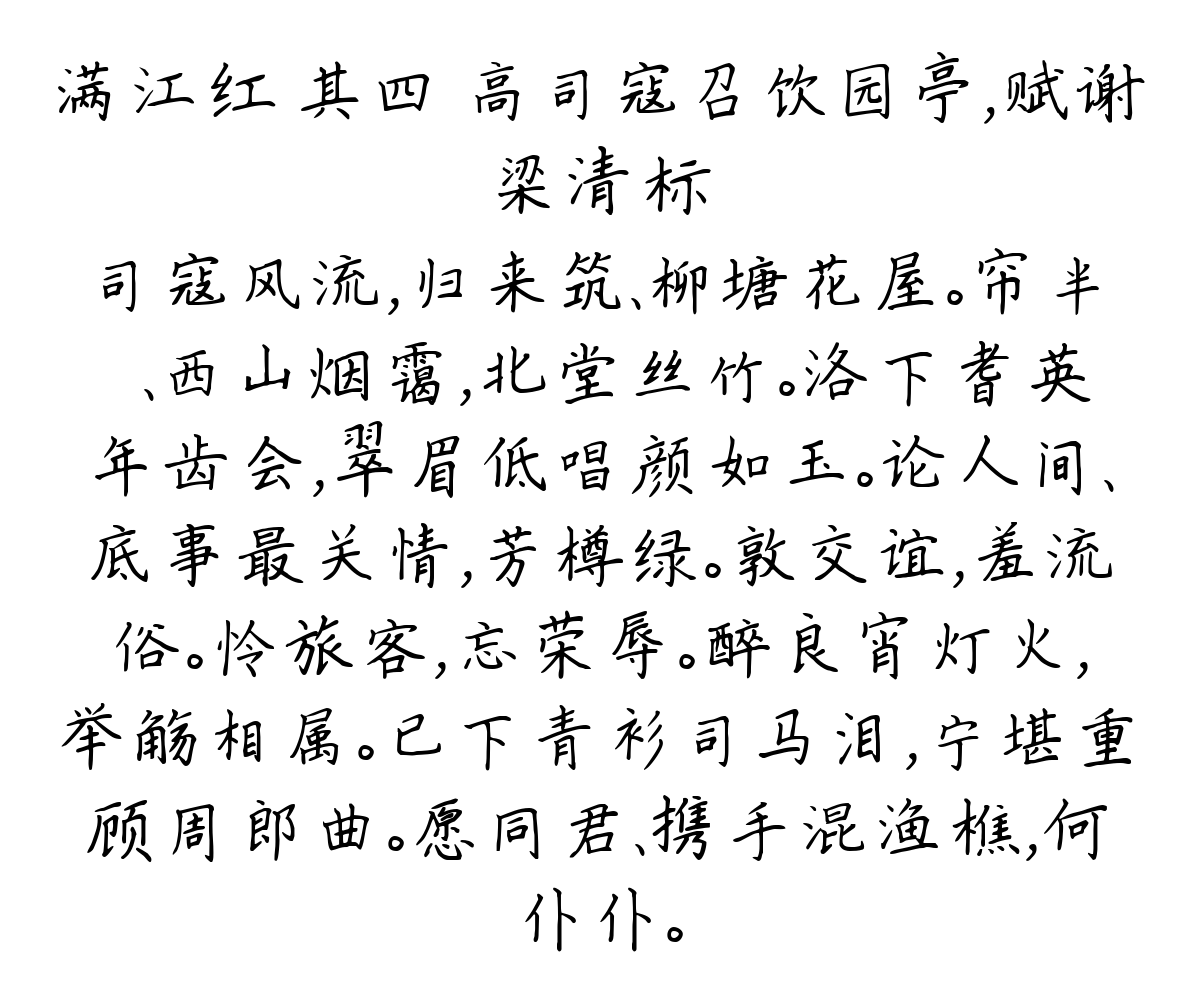 满江红 其四 高司寇召饮园亭,赋谢
梁清标
司寇风流,归来筑、柳塘花屋。帘半
、西山烟霭,北堂丝竹。洛下耆英
年齿会,翠眉低唱颜如玉。论人间、
底事最关情,芳樽绿。敦交谊,羞流
俗。怜旅客,忘荣辱。醉良宵灯火,
举觞相属。已下青衫司马泪,宁堪重
顾周郎曲。愿同君、携手混渔樵,何
仆仆。